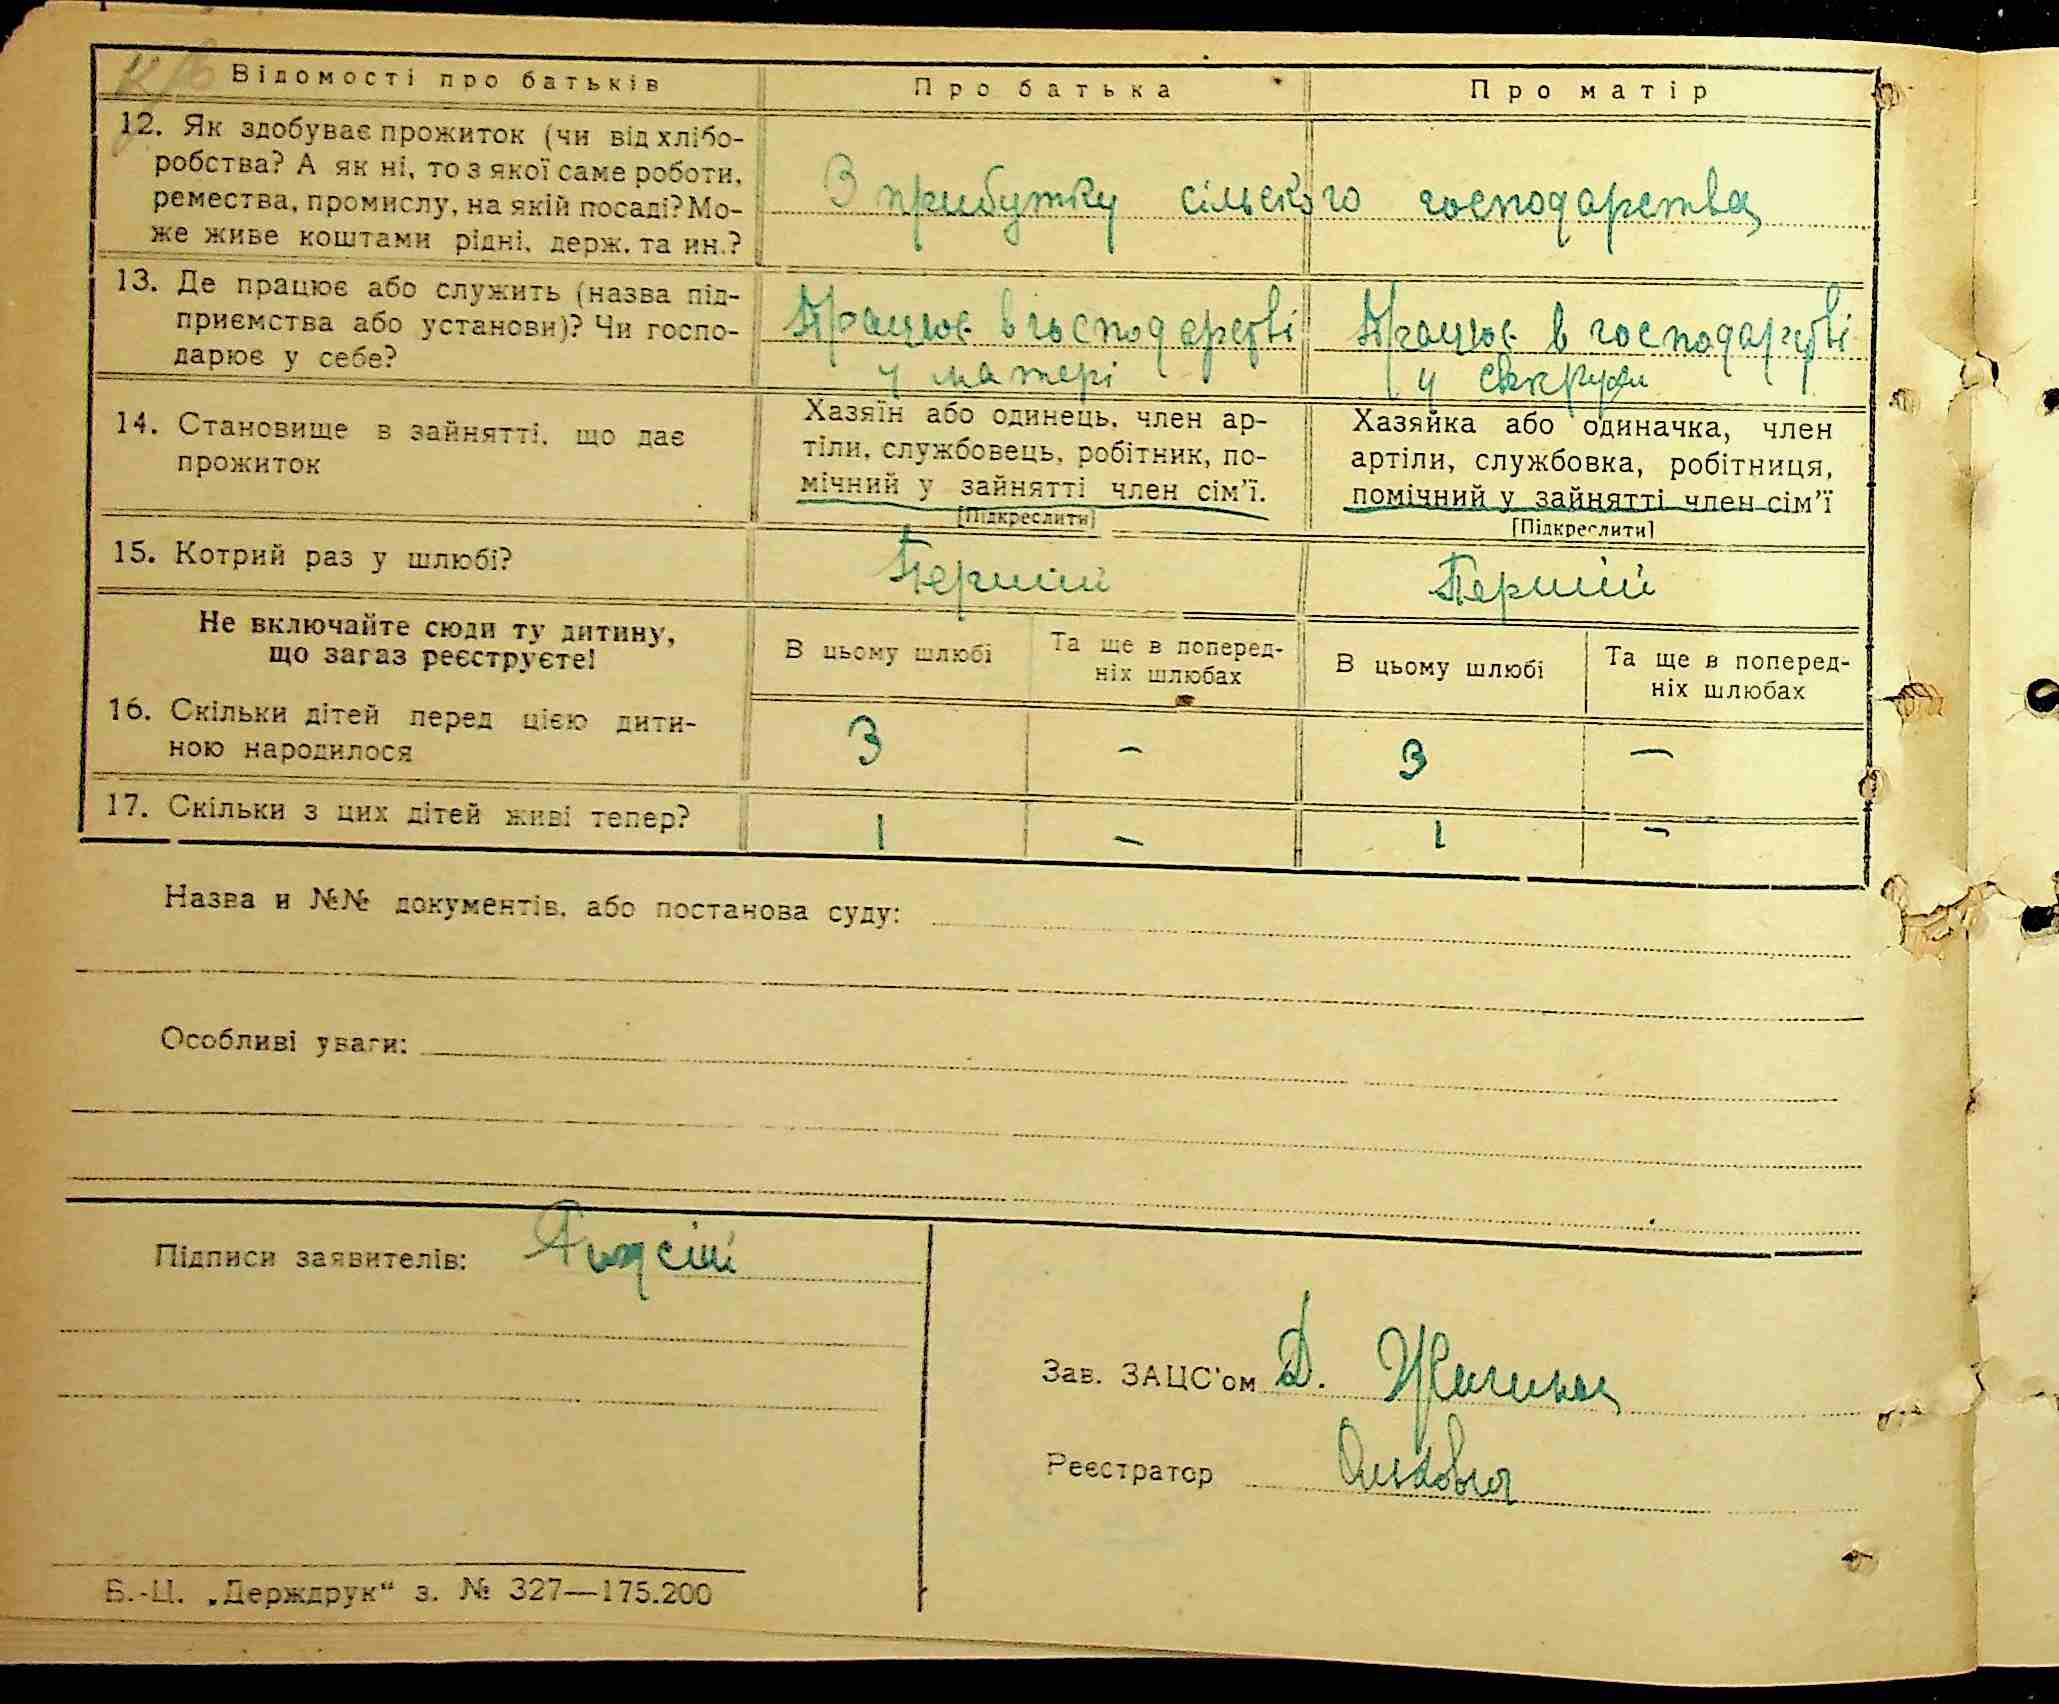 Відомості про батьків
Про батька
Про матір
12. Як здобуває прожиток (чи від хлібо-
робства? А як ні, то з якої саме роботи,
ремества, промислу, на якій посаді? Мо-
же живе коштами рідні, держ. та ин.?
З прибутку сільского господарства
13. Де працює або служить (назва під-
приємства або установи)? Чи госпо-
дарює у себе?
Працює в господарстві
у матері
Працює в господарстві
у свекрухи
14. Становище в зайнятті, що дає
прожиток
Хазяїн або одинець, член ар-
тіли, службовець, робітник, по-
мічний у зайнятті член сім'ї.
[Підкреслити]
Хазяйка або одиначка, член
артіли, службовка, робітниця,
помічний у зайнятті член сім'ї
[Підкреслити]
15. Котрий раз у шлюбі?
Перший
Перший
Не включайте сюди ту дитину,
що загаз реєструєте!
В цьому шлюбі
Та ще в поперед-
ніх шлюбах
В цьому шлюбі
Та ще в поперед-
ніх шлюбах
16. Скільки дітей перед цією дити-
ною народилося
3 – 3 –
17. Скільки з цих дітей живі тепер?
1 – 1 –
Назва и №№ документів, або постанова суду:
Особливі уваги:
Підписи заявителів:
Зав. ЗАЦС'ом Д.
Реєстратор
Б.-Ц. „Держдрук“ з. № 327—175.200